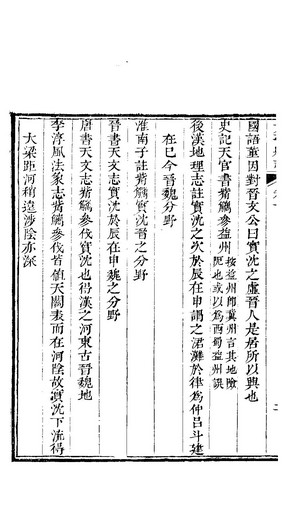 國語董因對晉文公曰實沈之虛晉人是居所以興也
史記天官書觜觿參益州按益州卽冀州言其地險阨以為西蜀益州誤
後漢地理志註實沈之次於辰在申謂之涒灘於律為仲呂斗建
在巳今晉魏分野
淮南子註觜觿實沈晉之分野
晉書天文志實沈於辰在申魏之分野
唐書天文志觜觿參伐實沈也得漢之河東古晉魏地
李淳風法象志觜觿參伐皆值天關表而在河陰故實沈下流得
大梁距河稍遠涉陰亦深